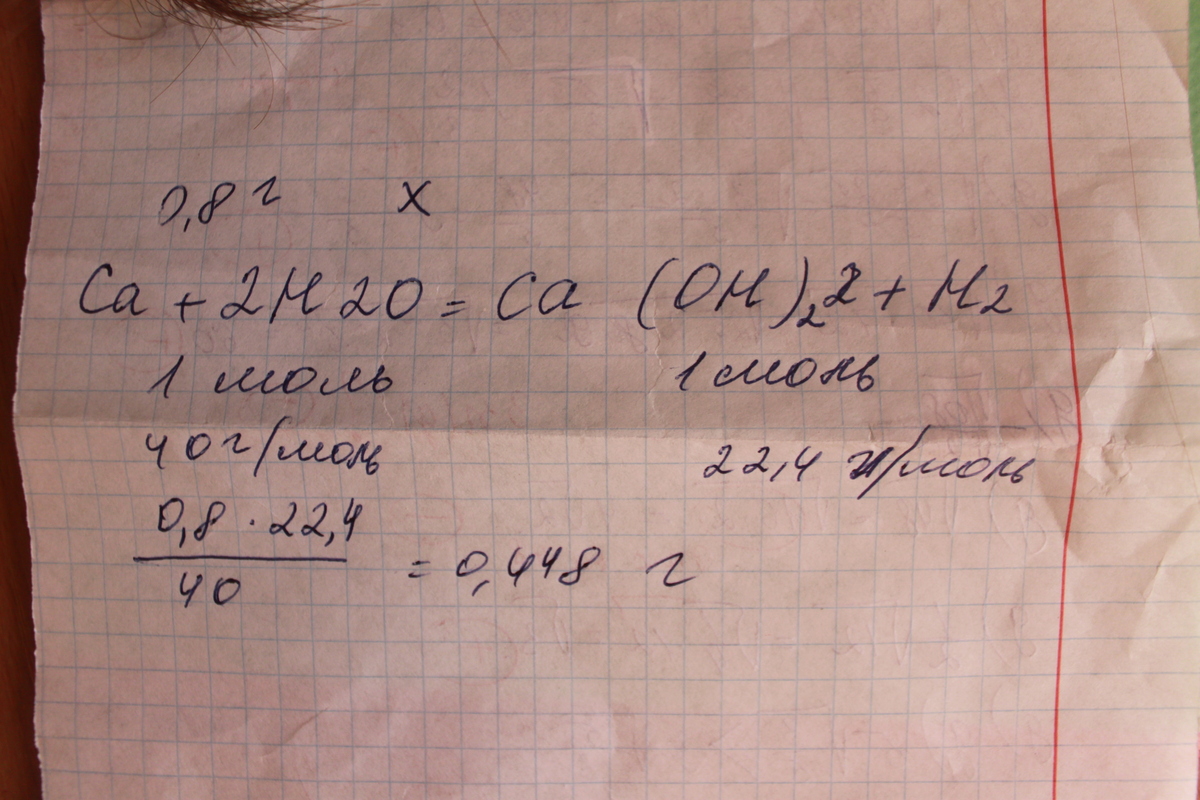 0,8 г x
Ca + 2H2O = Ca (OH)₂2 + H2
1 моль 1 моль
40 г/моль 22,4 л/моль
0,8 · 22,4
= 0,448 г
40